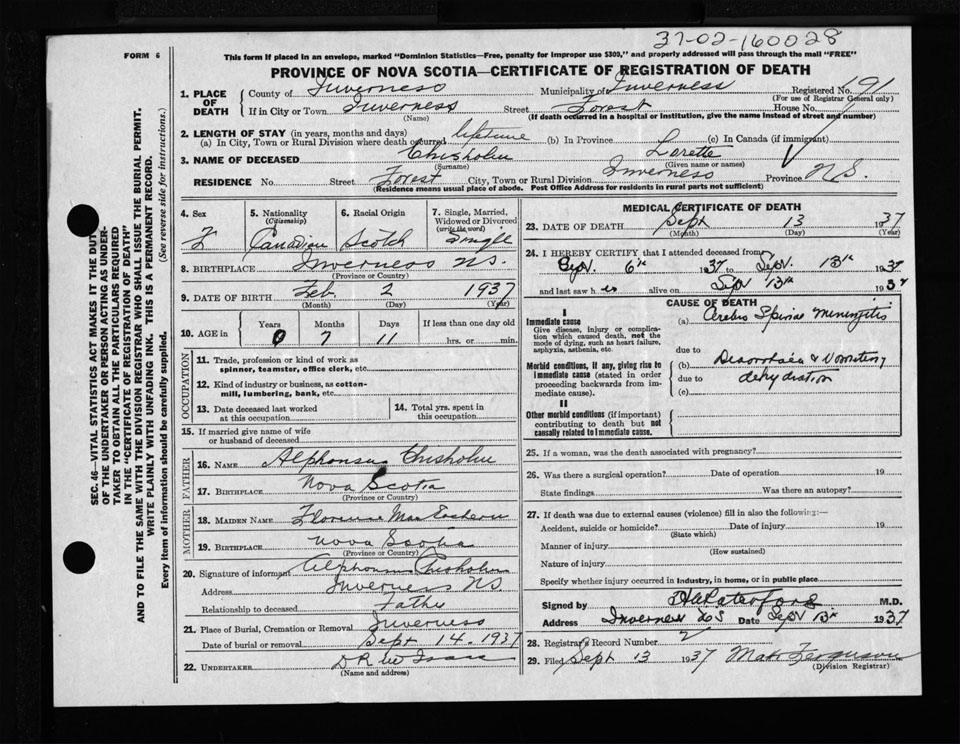 37-02-160028
FORM 6
This form if placed in an envelope, marked "Dominion Statistics—Free, penalty for improper use $300," and properly addressed will pass through the mail "FREE"
PROVINCE OF NOVA SCOTIA—CERTIFICATE OF REGISTRATION OF DEATH
1. PLACE OF DEATH County of Inverness Municipality of Inverness Registered No. 191
(For use of Registrar General only)
If in City or Town Inverness Street Forest House No.
(Name) (If death occurred in a hospital or institution, give the name instead of street and number)
2. LENGTH OF STAY (in years, months and days)
(a) In City, Town or Rural Division where death occurred lifetime (b) In Province (c) In Canada (if immigrant)
3. NAME OF DECEASED Chisholm Lorette
(Surname) (Given name or names)
RESIDENCE No. Street Forest City, Town or Rural Division Inverness Province N.S.
(Residence means usual place of abode. Post Office Address for residents in rural parts not sufficient)
4. Sex 5. Nationality (Citizenship) 6. Racial Origin 7. Single, Married, Widowed or Divorced (write the word)
F Canadian Scotch Single
8. BIRTHPLACE Inverness N.S.
(Province or Country)
9. DATE OF BIRTH Feb. 2 1937
(Month) (Day) (Year)
10. AGE in Years Months Days If less than one day old
0 7 11 hrs. or min.
OCCUPATION
11. Trade, profession or kind of work as spinner, teamster, office clerk, etc.
12. Kind of industry or business, as cotton-mill, lumbering, bank, etc.
13. Date deceased last worked at this occupation 14. Total yrs. spent in this occupation
15. If married give name of wife or husband of deceased
FATHER
16. NAME Alphonsus Chisholm
17. BIRTHPLACE Nova Scotia
(Province or Country)
MOTHER
18. MAIDEN NAME Florence MacEachern
19. BIRTHPLACE Nova Scotia
(Province or Country)
20. Signature of informant Alphonsus Chisholm
Address Inverness N.S.
Relationship to deceased Father
21. Place of Burial, Cremation or Removal Inverness
Date of burial or removal Sept 14. 1937
22. UNDERTAKER D R
(Name and address)
MEDICAL CERTIFICATE OF DEATH
23. DATE OF DEATH Sept 13 1937
(Month) (Day) (Year)
24. I HEREBY CERTIFY that I attended deceased from
Sept. 6th 1937 to Sept. 13th 1937
and last saw h er alive on Sept 13th 1937
CAUSE OF DEATH
I
Immediate cause (a) Cerebro Spinal Meningitis
Give disease, injury or complication which caused death, not the mode of dying, such as heart failure, asphyxia, asthenia, etc.
due to
Morbid conditions, if any, giving rise to immediate cause (stated in order proceeding backwards from immediate cause). (b) Diarrhoea & Vomiting
due to dehydration
(c)
II
Other morbid conditions (if important) contributing to death but not causally related to immediate cause.
25. If a woman, was the death associated with pregnancy?
26. Was there a surgical operation? Date of operation 19
State findings Was there an autopsy?
27. If death was due to external causes (violence) fill in also the following:—
Accident, suicide or homicide? Date of injury 19
(State which)
Manner of injury
(How sustained)
Nature of injury
Specify whether injury occurred in industry, in home, or in public place
Signed by M.D.
Address Inverness NS Date Sept 13th 1937
28. Registrar's Record Number 2
29. Filed Sept 13 1937 Ferguson
(Division Registrar)
SEC. 46—VITAL STATISTICS ACT MAKES IT THE DUTY
OF THE UNDERTAKER OR PERSON ACTING AS UNDER-
TAKER TO OBTAIN ALL THE PARTICULARS REQUIRED
IN THE "CERTIFICATE OF REGISTRATION OF DEATH"
AND TO FILE THE SAME WITH THE DIVISION REGISTRAR WHO SHALL ISSUE THE BURIAL PERMIT.
WRITE PLAINLY WITH UNFADING INK. THIS IS A PERMANENT RECORD.
Every item of information should be carefully supplied. (See reverse side for instructions.)